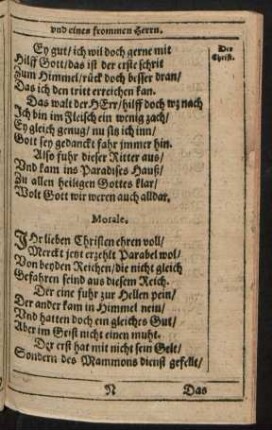 vnd eines frommen Herrn.
Ey gut/ ich wil doch gerne mit
Der
Christ.
Hilff Gott/ das ist der erste schrit
Zum Himmel/ rück doch besser dran/
Das ich den tritt erreichen kan.
Das walt der HErr/ hilff doch wz nach
Ich bin im Fleisch ein wenig zach/
Ey gleich genug/ nu sitz ich inn/
Gott sey gedanckt fahr immer hin.
Also fuhr dieser Ritter aus/
Vnd kam ins Paradises Hauß/
Zu allen heiligen Gottes klar/
Wolt Gott wir weren auch alldar.
Morale.
IHr lieben Christen ehren voll/
Merckt jetzt erzehlt Parabel wol/
Von beyden Reichen/ die nicht gleich
Gefahren seind aus diesem Reich.
Der eine fuhr zur Hellen pein/
Der ander kam in Himmel nein/
Vnd hatten doch ein gleiches Gut/
Aber im Geist nicht einen muht.
Der erst hat mit nicht sein Gelt/
Sondern des Mammons dienst gefellt/
N
Das